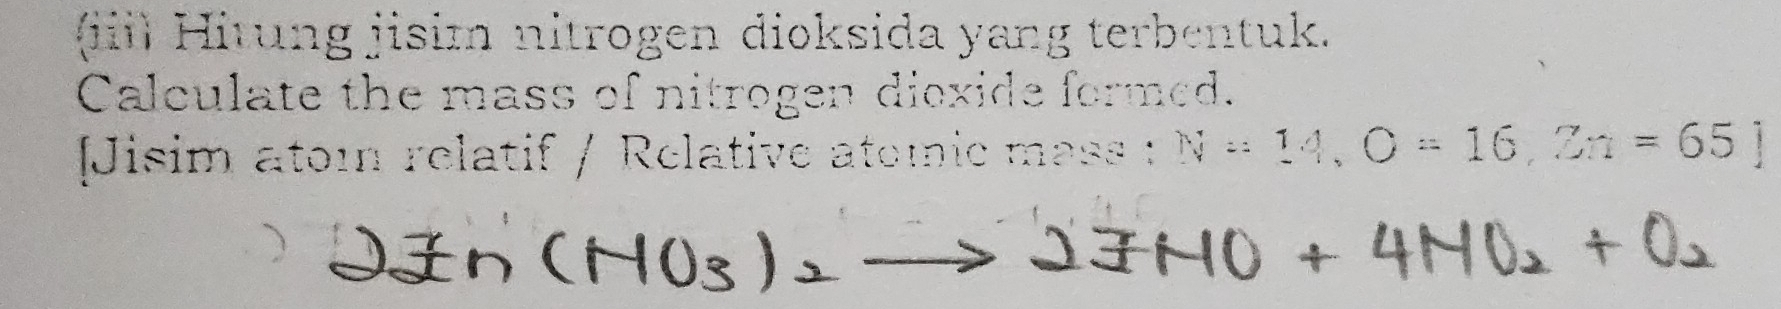 (iii) Hitung jisim nitrogen dioksida yang terbentuk.
Calculate the mass of nitrogen dioxide formed.
[Jisim atom relatif / Relative atomic mass : N = 14, O = 16, Zn = 65]
2Zn(NO3)2 → 2ZNO + 4NO2 + O2